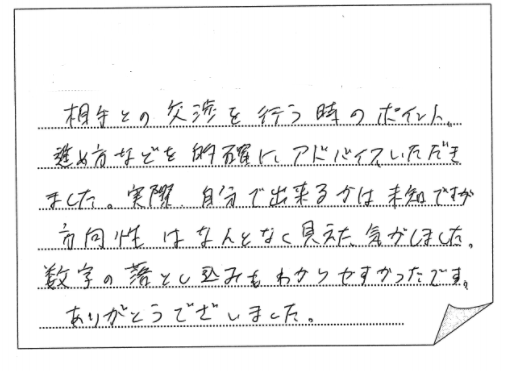 相手との交渉を行う時のポイント。
進め方などを的確に、アドバイスいただき
ました。実際、自分で出来るかは未知ですが
方向性はなんとなく見えた気がしました。
数字の落とし込みもわかりやすかったです。
ありがとうございました。